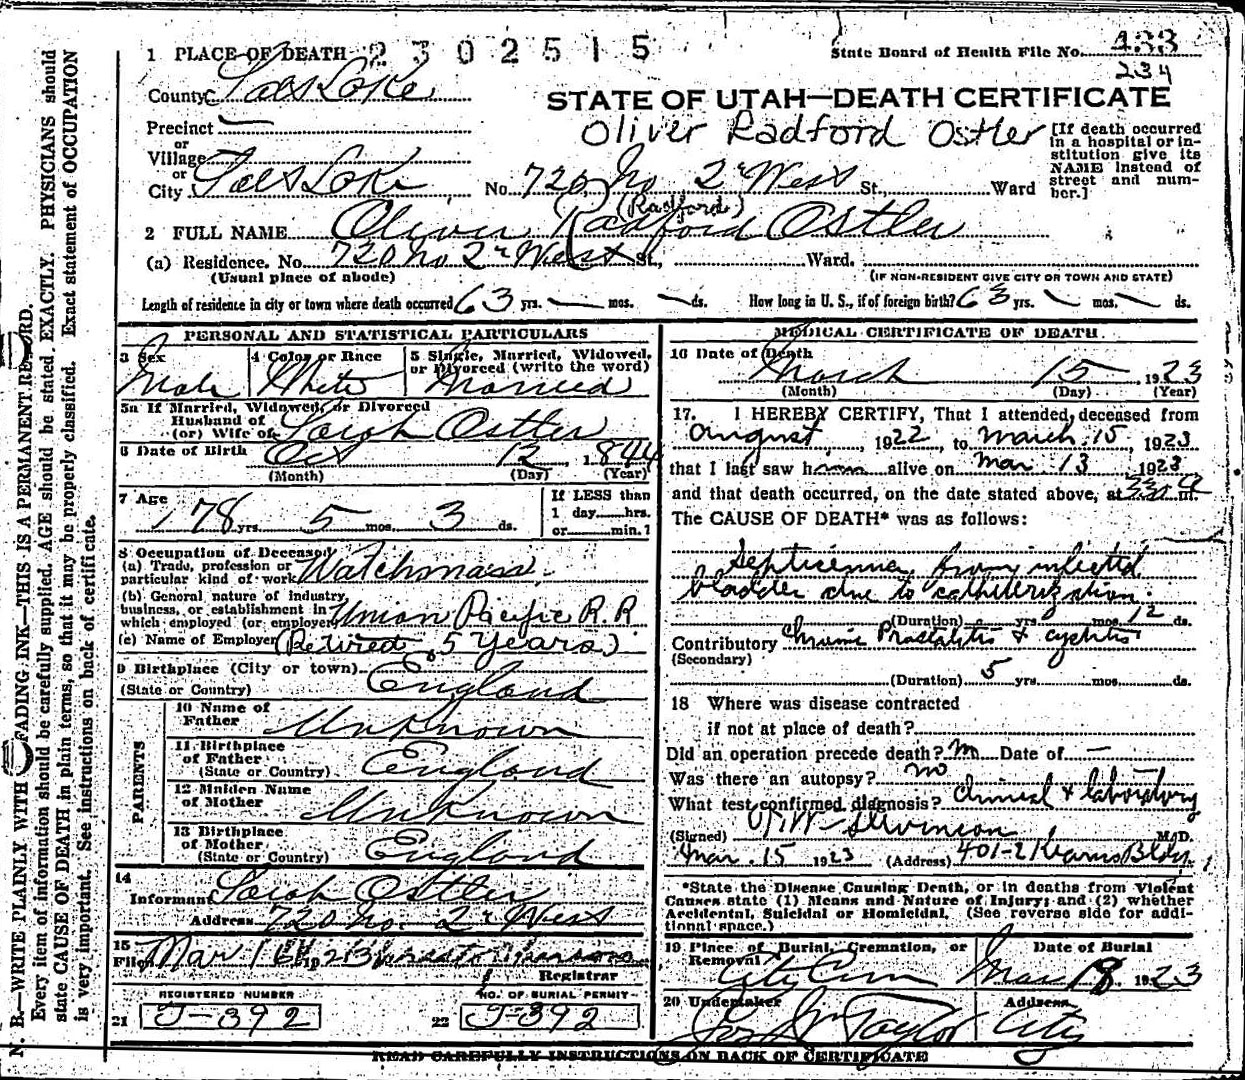 1 PLACE OF DEATH 2302515
State Board of Health File No. 433
234
County Salt Lake
STATE OF UTAH—DEATH CERTIFICATE
Oliver Radford Ostler
Precinct —
or
Village
or
City Salt Lake No. 720 No 2d West St., Ward
[If death occurred
in a hospital or in-
stitution give its
NAME instead of
street and num-
ber.]
(Radford)
2 FULL NAME Oliver Radford Ostler
(a) Residence. No. 720 No 2d West St., Ward.
(Usual place of abode) (IF NON-RESIDENT GIVE CITY OR TOWN AND STATE)
Length of residence in city or town where death occurred 63 yrs. — mos. — ds. How long in U. S., if of foreign birth? 63 yrs. — mos. — ds.
PERSONAL AND STATISTICAL PARTICULARS
3 Sex Male
4 Color or Race White
5 Single, Married, Widowed, or Divorced (write the word) Married
5a If Married, Widowed, or Divorced
Husband of
(or) Wife of Sarah Ostler
6 Date of Birth Oct 12, 1844
(Month) (Day) (Year)
7 Age 78 yrs. 5 mos. 3 ds.
If LESS than
1 day....hrs.
or......min.?
8 Occupation of Deceased
(a) Trade, profession or
particular kind of work Watchman
(b) General nature of industry,
business, or establishment in
which employed (or employer) Union Pacific R.R
(c) Name of Employer (Retired 5 Years)
9 Birthplace (City or town)
(State or Country) England
PARENTS
10 Name of
Father Unknown
11 Birthplace
of Father
(State or Country) England
12 Maiden Name
of Mother Unknown
13 Birthplace
of Mother
(State or Country) England
14
Informant Sarah Ostler
Address 720 No. 2d West
15
Filed Mar 16th 1923
Registrar
REGISTERED NUMBER
21 J-392
NO. OF BURIAL PERMIT
22 J-392
MEDICAL CERTIFICATE OF DEATH
16 Date of Death
March 15, 1923
(Month) (Day) (Year)
17. I HEREBY CERTIFY, That I attended deceased from
August, 1922, to March 15, 1923
that I last saw him alive on Mar 13, 1923
and that death occurred, on the date stated above, at m.
The CAUSE OF DEATH* was as follows:
Septicemia from infected
bladder due to catheterization.
(Duration) yrs. mos. 12 ds.
Contributory Chronic Prostatitis & cystitis
(Secondary)
(Duration) 5 yrs. mos. ds.
18 Where was disease contracted
if not at place of death?
Did an operation precede death? no Date of —
Was there an autopsy? no
What test confirmed diagnosis? Clinical & laboratory
(Signed) Stevenson M.D.
Mar. 15 1923 (Address) 401-2 Kearns Bldg.
*State the Disease Causing Death, or in deaths from Violent
Causes state (1) Means and Nature of Injury; and (2) whether
Accidental, Suicidal or Homicidal. (See reverse side for addi-
tional space.)
19 Place of Burial, Cremation, or
Removal City Cem
Date of Burial
Mar 18 1923
20 Undertaker
Jos Wm Taylor
Address
City
READ CAREFULLY INSTRUCTIONS ON BACK OF CERTIFICATE
N. B.—WRITE PLAINLY, WITH FADING INK—THIS IS A PERMANENT RECORD.
Every item of information should be carefully supplied. AGE should be stated EXACTLY. PHYSICIANS should
state CAUSE OF DEATH in plain terms, so that it may be properly classified. Exact statement of OCCUPATION
is very important. See instructions on back of certificate.